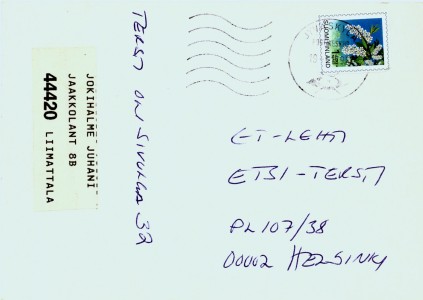 JOKIHALME JUHANI
JAAKKOLANT 8B
44420 LIIMATTALA
TERSÄ ON SIVULLA 32
SUOMI FINLAND
ET-LEHTI
ETSI-TERSÄ
PL 107/38
00002 HELSINKI